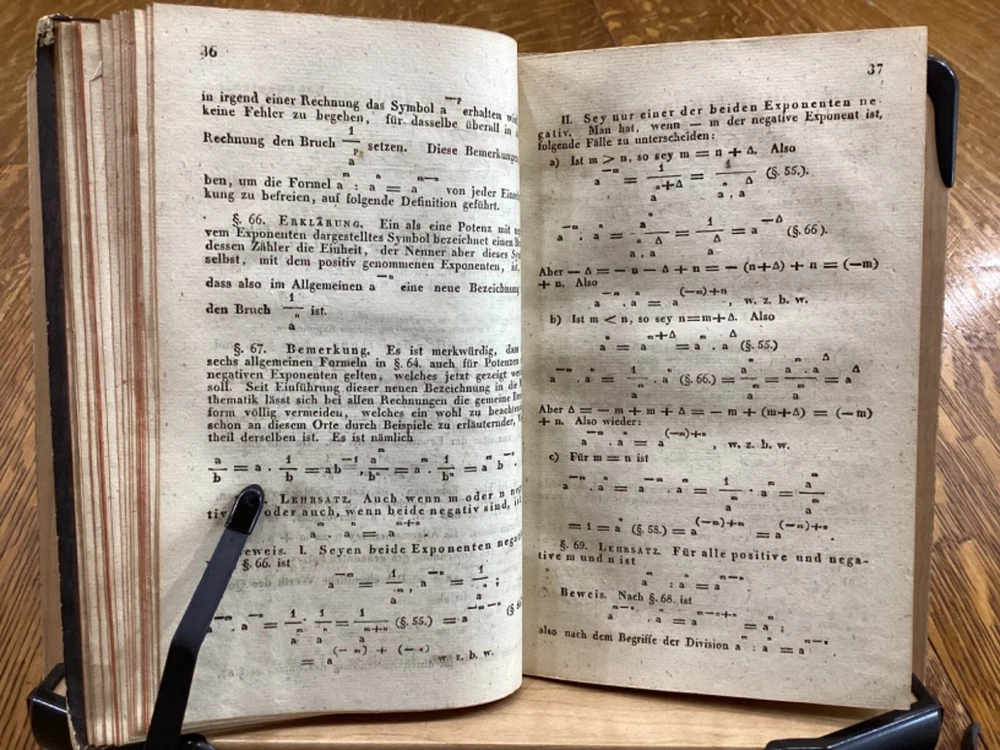 36
in irgend einer Rechnung das Symbol a⁻ᵖ erhalten
keine Fehler zu begehen, für dasselbe überall in
Rechnung den Bruch 1/aᵖ setzen. Diese Bemerkungen
ben, um die Formel aᵐ : aⁿ = aᵐ⁻ⁿ von jeder
kung zu befreien, auf folgende Definition geführt.
§. 66. ERKLÄRUNG. Ein als eine Potenz mit
vem Exponenten dargestelltes Symbol bezeichnet einen
dessen Zähler die Einheit, der Nenner aber dieses
selbst, mit dem positiv genommenen Exponenten, ist,
dass also im Allgemeinen a⁻ⁿ eine neue Bezeichnung
den Bruch 1/aⁿ ist.
§. 67. Bemerkung. Es ist merkwürdig, dass
sechs allgemeinen Formeln in §. 64. auch für Potenzen
negativen Exponenten gelten, welches jetzt gezeigt
soll. Seit Einführung dieser neuen Bezeichnung in die
thematik lässt sich bei allen Rechnungen die gemeine
form völlig vermeiden, welches ein wohl zu
schon an diesem Orte durch Beispiele zu erläuternder,
theil derselben ist. Es ist nämlich
a/b = a · 1/b = ab⁻¹, aᵐ/bⁿ = aᵐ · 1/bⁿ = aᵐ b⁻ⁿ.
LEHRSATZ. Auch wenn m oder n
oder auch, wenn beide negativ sind,
aᵐ . aⁿ = aᵐ⁺ⁿ
eweis. I. Seyen beide Exponenten
§. 66. ist
a⁻ᵐ = 1/aᵐ, a⁻ⁿ = 1/aⁿ;
a⁻ᵐ . a⁻ⁿ = 1/aᵐ · 1/aⁿ = 1/aᵐ⁺ⁿ (§. 55.) = a⁻ᵐ⁻ⁿ (§.
= a⁽⁻ᵐ⁾ ⁺ ⁽⁻ⁿ⁾ w. z. b. w.
37
II. Sey nur einer der beiden Exponenten ne-
gativ. Man hat, wenn — m der negative Exponent ist,
folgende Fälle zu unterscheiden:
a) Ist m > n, so sey m = n + Δ. Also
a⁻ᵐ = 1/a^(n+Δ) = 1/(aⁿ . a^Δ) (§. 55.).
a⁻ᵐ . aⁿ = aⁿ/(aⁿ . a^Δ) = 1/a^Δ = a^(−Δ) (§. 66).
Aber — Δ = — n — Δ + n = — (n+Δ) + n = (—m)
+ n. Also
a⁻ᵐ . aⁿ = a⁽⁻ᵐ⁾⁺ⁿ, w. z. b. w.
b) Ist m < n, so sey n=m+Δ. Also
aⁿ = a^(m+Δ) = aᵐ . a^Δ (§. 55.)
a⁻ᵐ . aⁿ = 1/aᵐ . aⁿ (§. 66.) = aⁿ/aᵐ = (aᵐ . a^Δ)/aᵐ = a^Δ
Aber Δ = — m + m + Δ = — m + (m+Δ) = (—m)
+ n. Also wieder:
a⁻ᵐ . aⁿ = a⁽⁻ᵐ⁾⁺ⁿ, w. z. b. w.
c) Für m = n ist
a⁻ᵐ . aⁿ = a⁻ᵐ . aᵐ = 1/aᵐ · aᵐ = aᵐ/aᵐ
= 1 = a⁰ (§. 58.) = a⁽⁻ᵐ⁾⁺ᵐ = a⁽⁻ᵐ⁾⁺ⁿ
§. 69. LEHRSATZ. Für alle positive und nega-
tive m und n ist
aᵐ : aⁿ = aᵐ⁻ⁿ
Beweis. Nach §. 68. ist
aᵐ⁻ⁿ . aⁿ = aᵐ⁻ⁿ⁺ⁿ = aᵐ;
also nach dem Begriffe der Division aᵐ : aⁿ = aᵐ⁻ⁿ